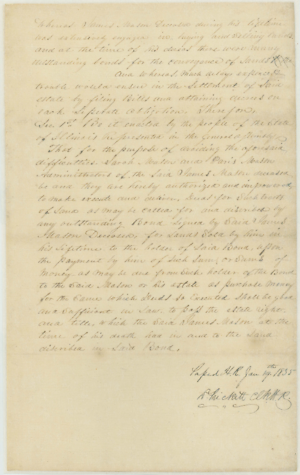 Whereas James Mason Deceased during his lifetime
was extensively engaged in buying and selling lands
and at the time of his decease there were many
outstanding bonds for the conveyance of Lands &c
And Whereas much delay expense &
trouble would ensue in the Settlement of Said
estate by filing Bills and obtaining decrees on
each Separate obligation. Therefore
Sec 1st Be it enacted by the people of the State
of Illinois represented in the General Assembly
That for the purpose of avoiding the aforesaid
difficulties Sarah Mason and Paris Mason
Administrators of the Said James Mason deceased
be and they are hereby authorized and empowered
to make execute and deliver, Deeds for Such lands
of Lands as may be called for and evidenced by
any outstanding Bond Signed by Said James
Mason Deceased for Lands Sold by him in
his lifetime to the holder of Said Bond, upon
the payment by him of Such Sum, or Sums of
Money as may be due from Such holder of the Bond
to the Said Mason or his estate as purchase money
for the Same which Deeds So executed Shall be good
and Sufficient in Law to pass the estate right
and title which the Said James Mason at the
time of his death had in and to the Land
described in Said Bond.
Passed H.R. Jan 19th 1835
D. Prickett Cl H R